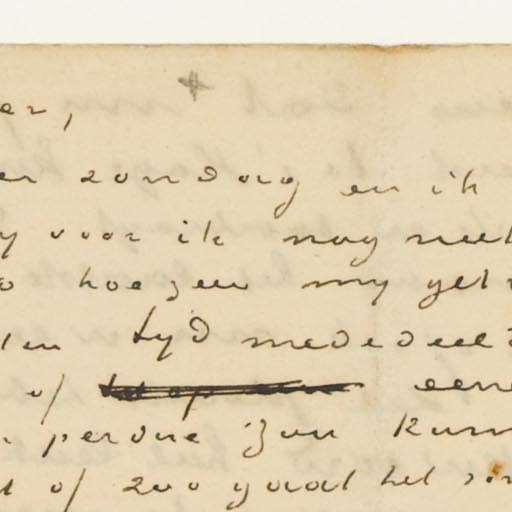 er,
er zondag en ik
y voor ik nog niet
o hoezeer my get
ten tyd mededeel
of eene
perdue zou kun
of zoo gaat het